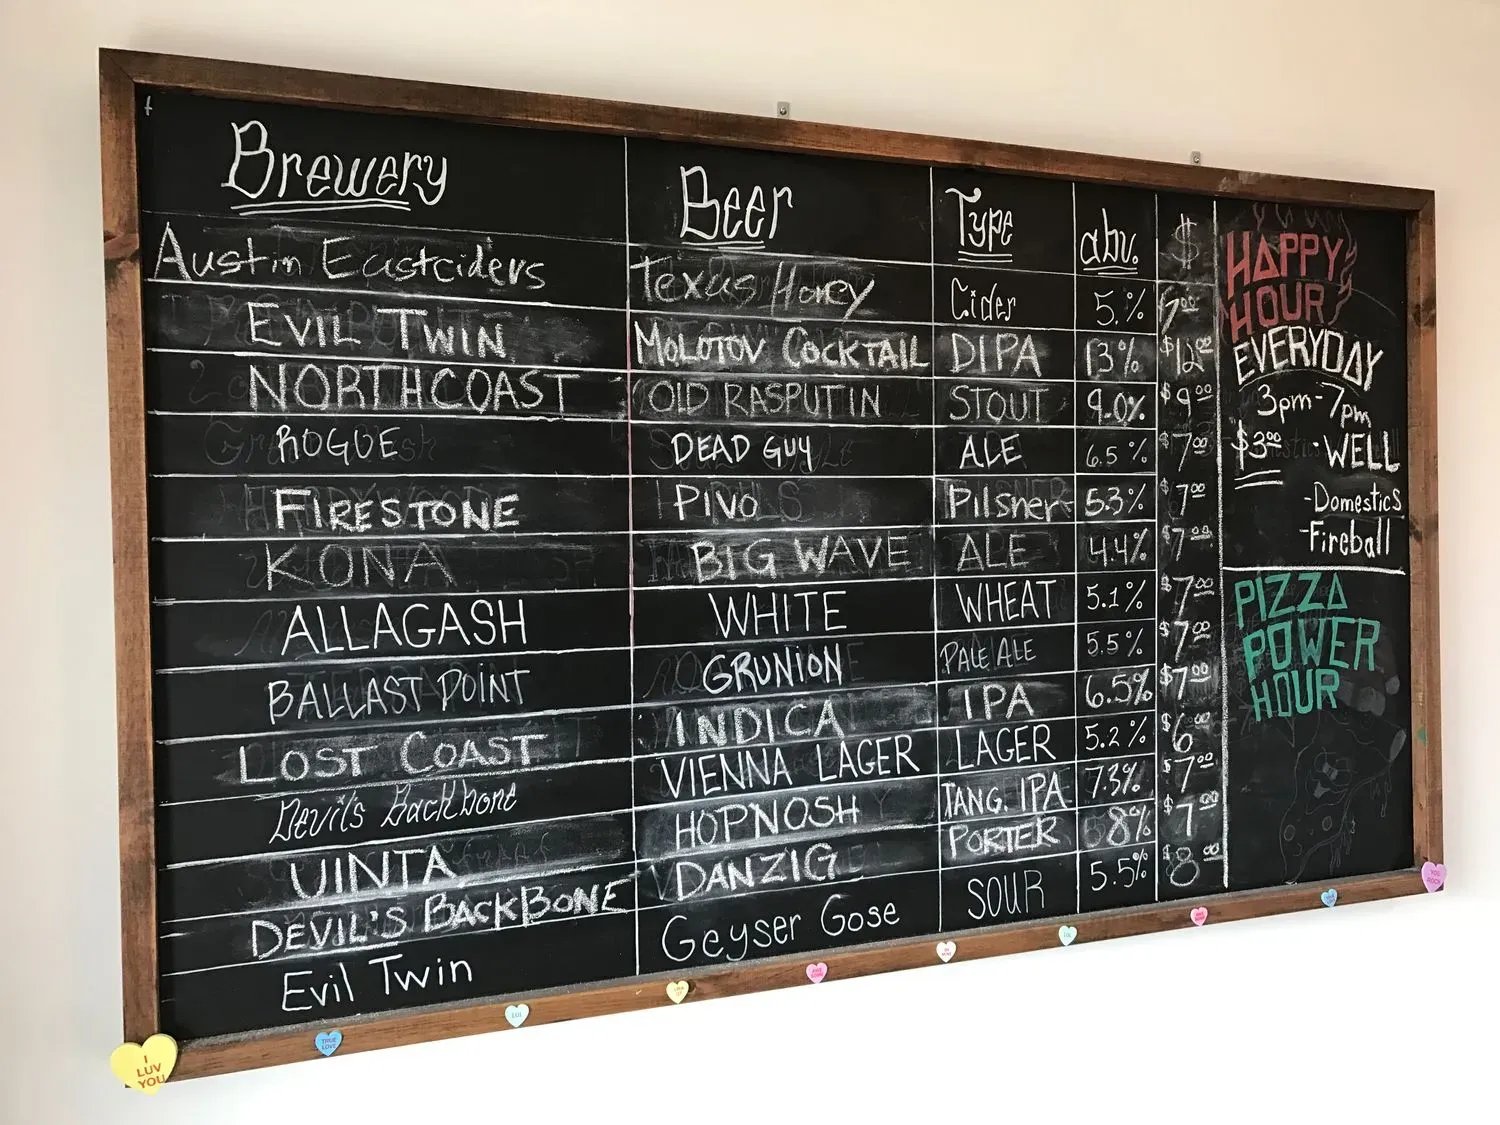 Brewery Beer Type abv. $
Austin Eastciders Texas Honey Cider 5.% $7.00
EVIL TWIN MOLOTOV COCKTAIL DIPA 13% $12.00
NORTHCOAST OLD RASPUTIN STOUT 9.0% $9.00
ROGUE DEAD GUY ALE 6.5% $7.00
FIRESTONE PIVO Pilsner 5.3% $7.00
KONA BIG WAVE ALE 4.4% $7.00
ALLAGASH WHITE WHEAT 5.1% $7.00
BALLAST POINT GRUNION PALE ALE 5.5% $7.00
LOST COAST INDICA IPA 6.5% $7.00
Devil's Backbone VIENNA LAGER LAGER 5.2% $6.00
UINTA HOPNOSH TANG. IPA 7.3% $7.00
DEVIL'S BACKBONE DANZIG PORTER 8% $7.00
Evil Twin Geyser Gose SOUR 5.5% $8.00
HAPPY
HOUR
EVERYDAY
3pm-7pm
$3.00 · WELL
-Domestics
-Fireball
PIZZA
POWER
HOUR
I
LUV
YOU
TRUE
LOVE
YOU
ROCK